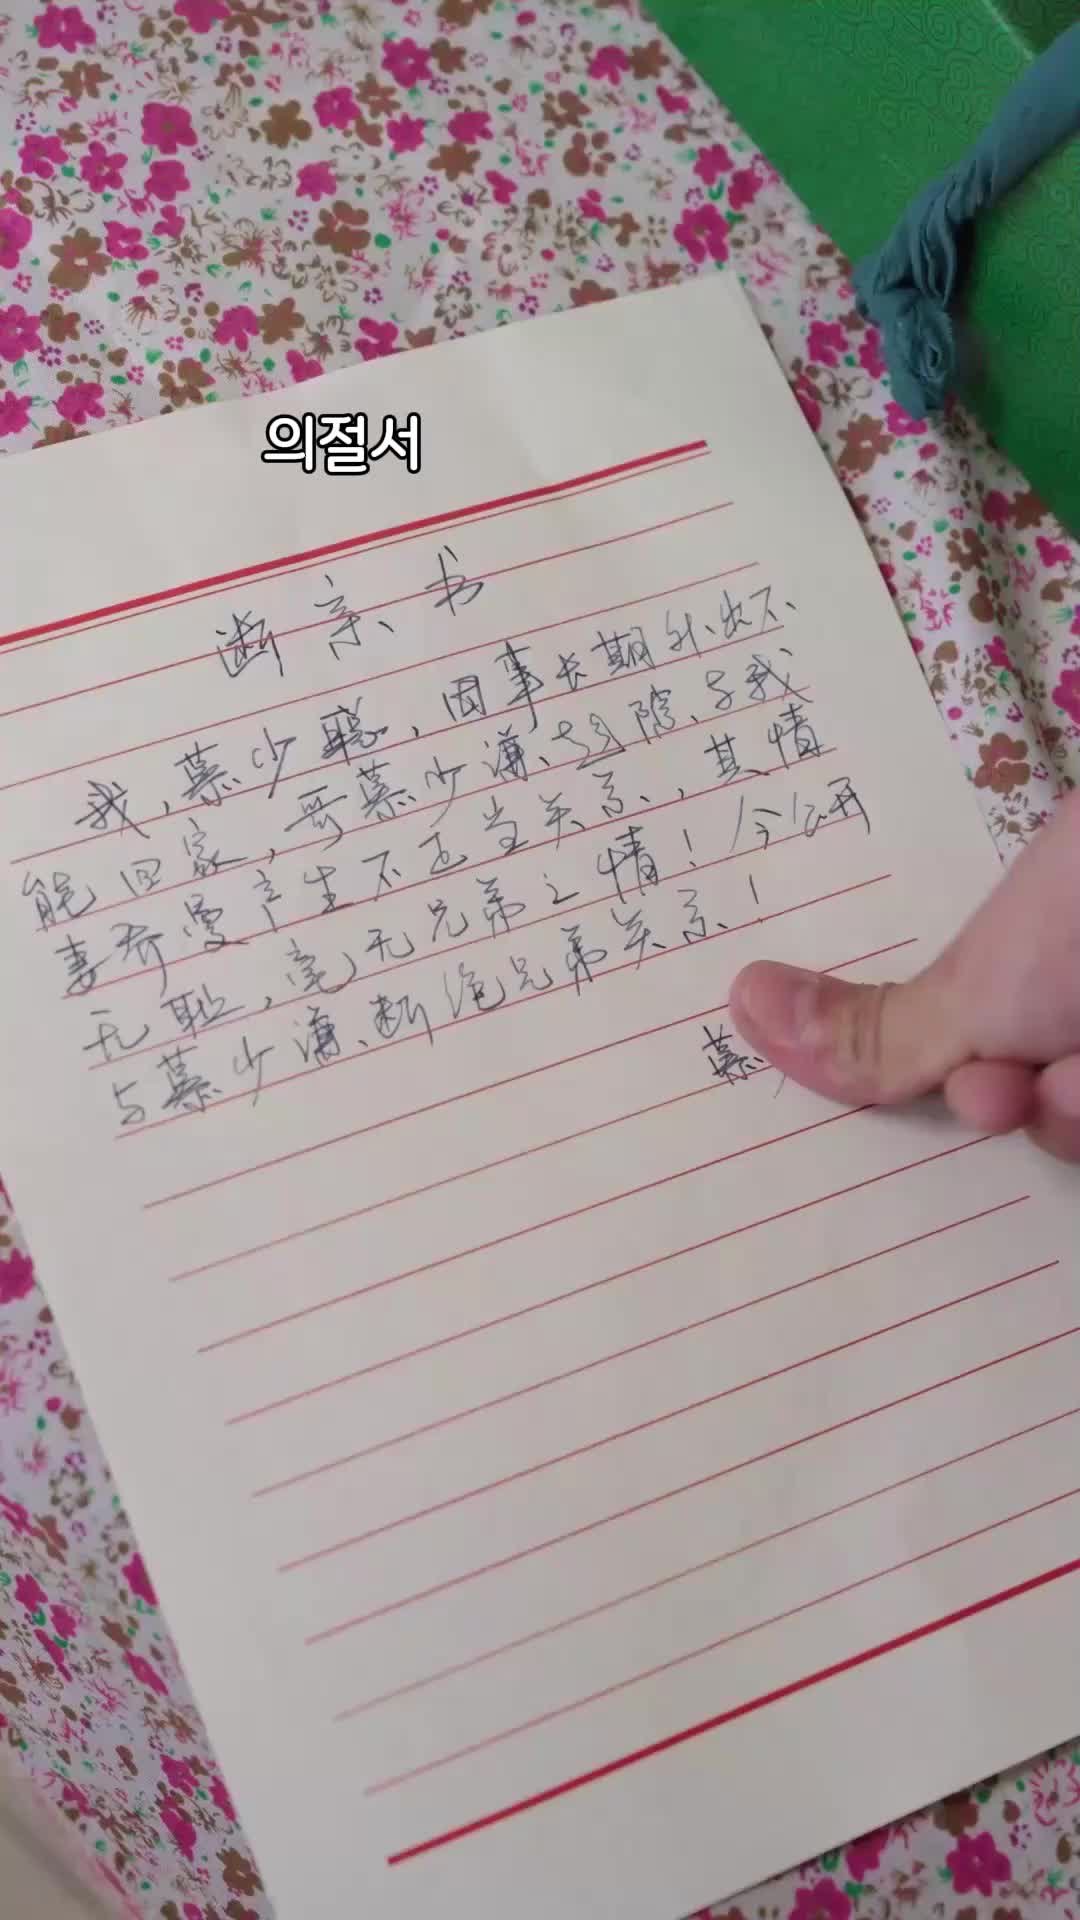 의절서
断亲书
我,慕少聪,因事长期外出不
能回家,哥慕少谦、趁隙、与我
妻乔曼产生不正当关系,其情
无耻,毫无兄弟之情!今公开
与慕少谦、断绝兄弟关系!
慕